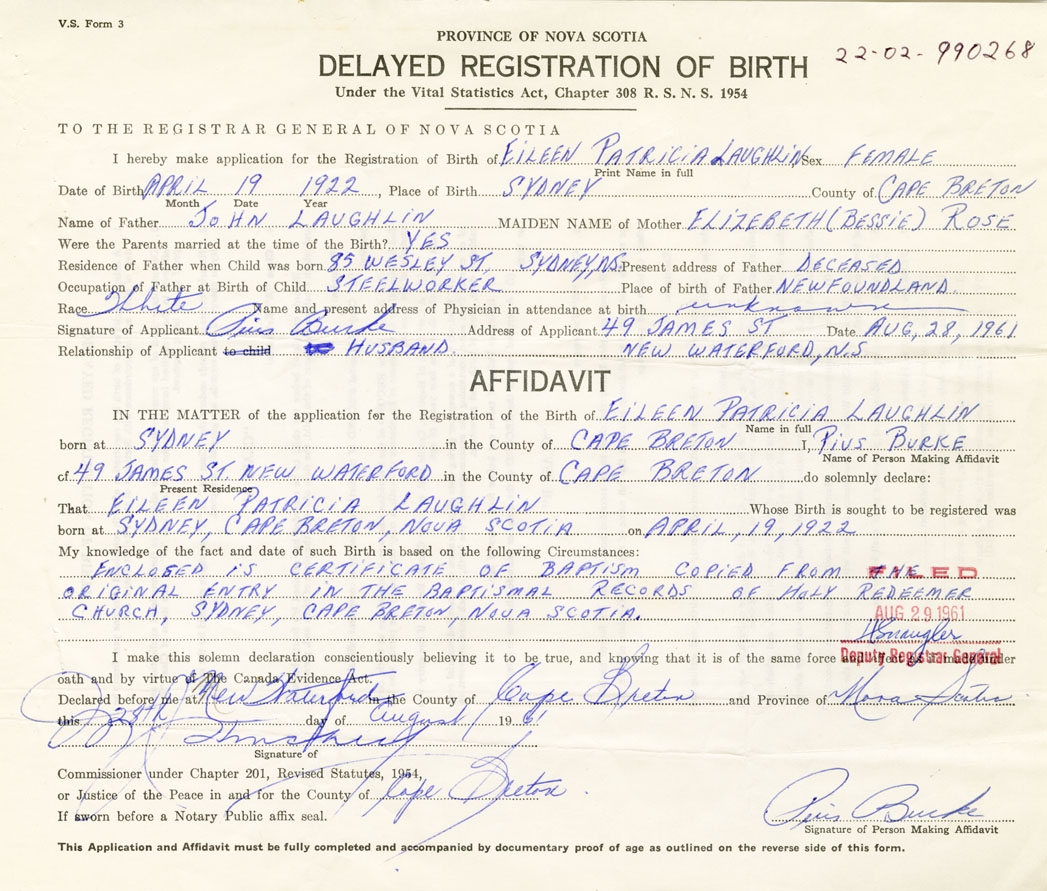 V.S. Form 3
PROVINCE OF NOVA SCOTIA
22-02-990268
DELAYED REGISTRATION OF BIRTH
Under the Vital Statistics Act, Chapter 308 R. S. N. S. 1954
TO THE REGISTRAR GENERAL OF NOVA SCOTIA
I hereby make application for the Registration of Birth of EILEEN PATRICIA LAUGHLIN Sex FEMALE
Print Name in full
Date of Birth APRIL 19 1922, Place of Birth SYDNEY County of CAPE BRETON
Month Date Year
Name of Father JOHN LAUGHLIN MAIDEN NAME of Mother ELIZEBETH (BESSIE) ROSE
Were the Parents married at the time of the Birth? YES
Residence of Father when Child was born 85 WESLEY ST, SYDNEY, NS. Present address of Father DECEASED
Occupation of Father at Birth of Child STEELWORKER Place of birth of Father NEWFOUNDLAND.
Race White Name and present address of Physician in attendance at birth unknown
Signature of Applicant Pius Burke Address of Applicant 49 JAMES ST Date AUG, 28, 1961
Relationship of Applicant to child HUSBAND. NEW WATERFORD, N.S
AFFIDAVIT
IN THE MATTER of the application for the Registration of the Birth of EILEEN PATRICIA LAUGHLIN
Name in full
born at SYDNEY in the County of CAPE BRETON I, PIUS BURKE
Name of Person Making Affidavit
of 49 JAMES ST. NEW WATERFORD in the County of CAPE BRETON do solemnly declare:
Present Residence
That EILEEN PATRICIA LAUGHLIN Whose Birth is sought to be registered was
born at SYDNEY, CAPE BRETON, NOVA SCOTIA on APRIL, 19, 1922
My knowledge of the fact and date of such Birth is based on the following Circumstances:
ENCLOSED IS CERTIFICATE OF BAPTISM COPIED FROM THE
FILED
ORIGINAL ENTRY IN THE BAPTISMAL RECORDS OF HOLY REDEEMER
CHURCH, SYDNEY, CAPE BRETON, NOVA SCOTIA.
AUG 29 1961
Deputy Registrar General
I make this solemn declaration conscientiously believing it to be true, and knowing that it is of the same force and effect as if made under
oath and by virtue of The Canada Evidence Act.
Declared before me at New Waterford in the County of Cape Breton and Province of Nova Scotia
this 28th day of August 1961
Signature of
Commissioner under Chapter 201, Revised Statutes, 1954,
or Justice of the Peace in and for the County of Cape Breton.
If sworn before a Notary Public affix seal.
Pius Burke
Signature of Person Making Affidavit
This Application and Affidavit must be fully completed and accompanied by documentary proof of age as outlined on the reverse side of this form.